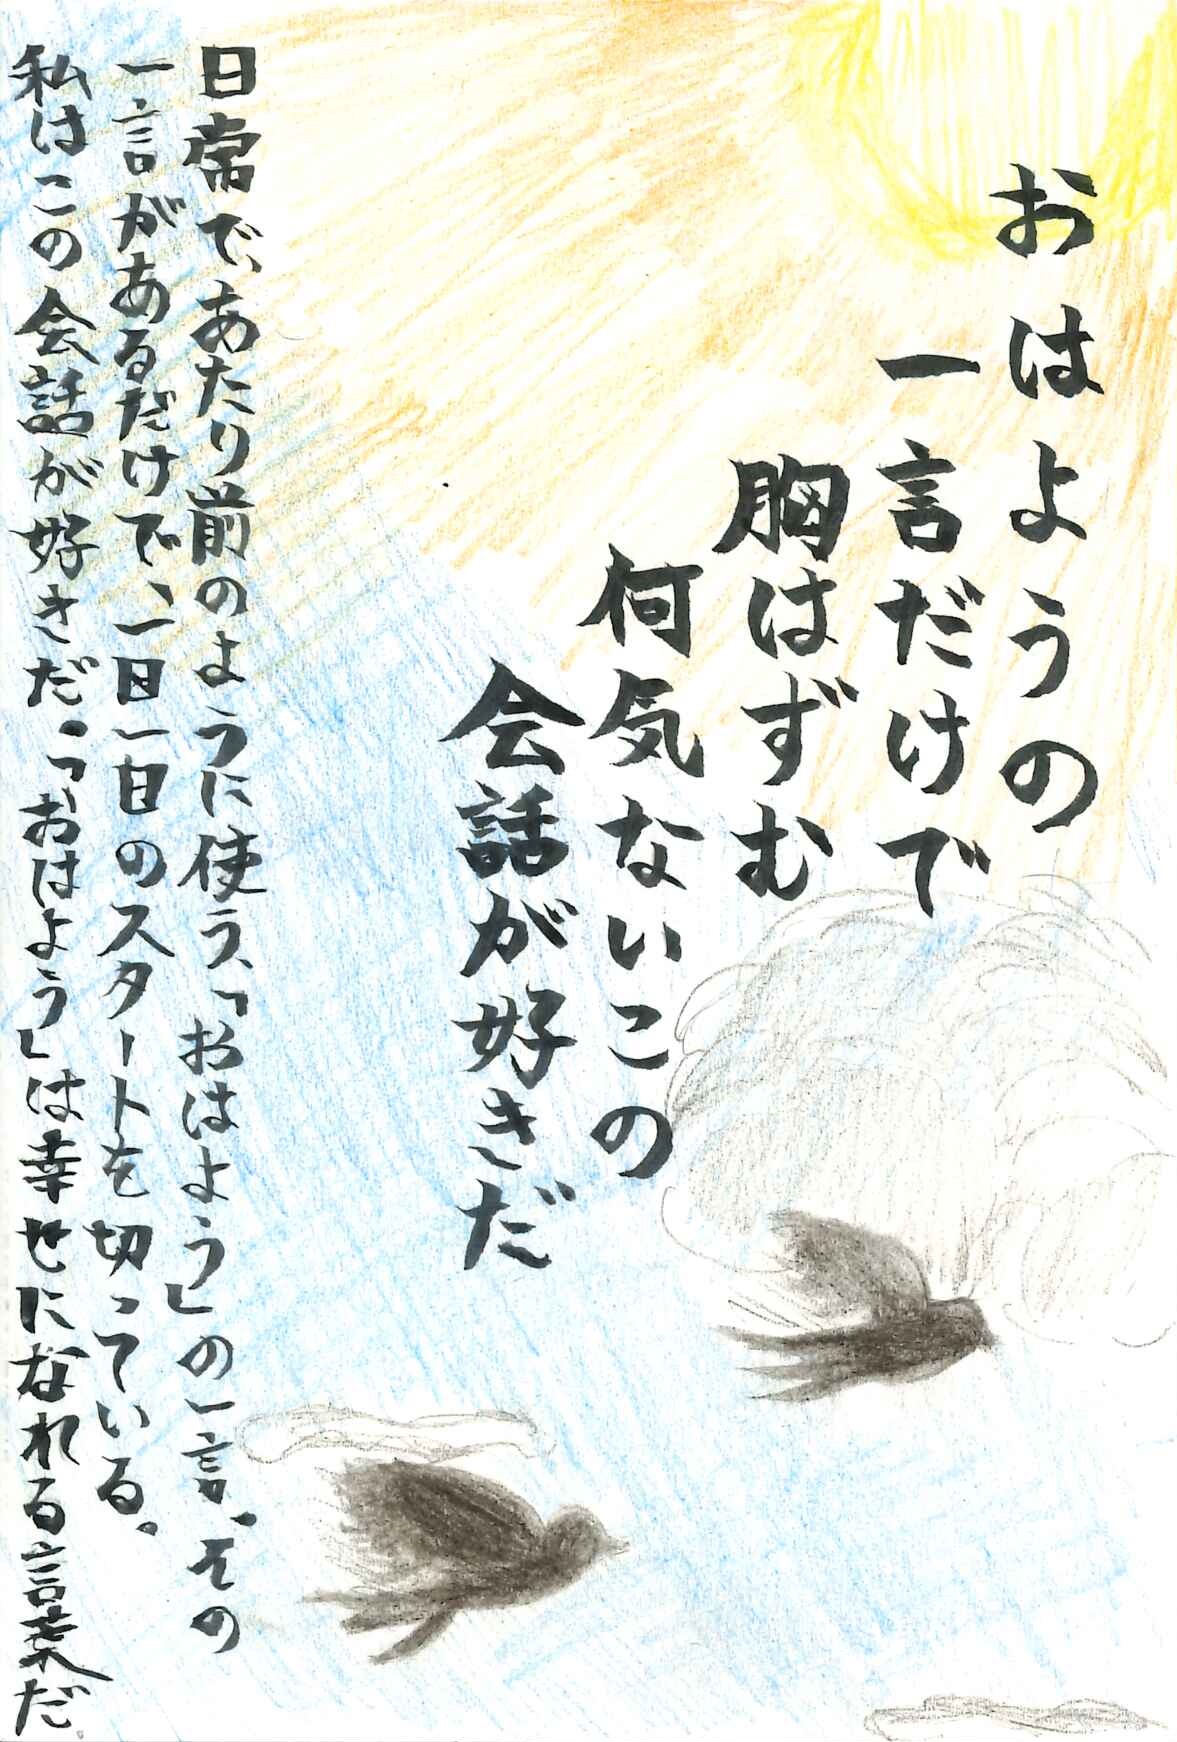 おはようの
一言だけで
胸はずむ
何気ないこの
会話が好きだ
日常で、あたり前のように使う、「おはよう」の一言、その
一言があるだけで、一日一日のスタートを切っている。
私はこの会話が好きだ。「おはよう」は幸せになれる言葉だ。